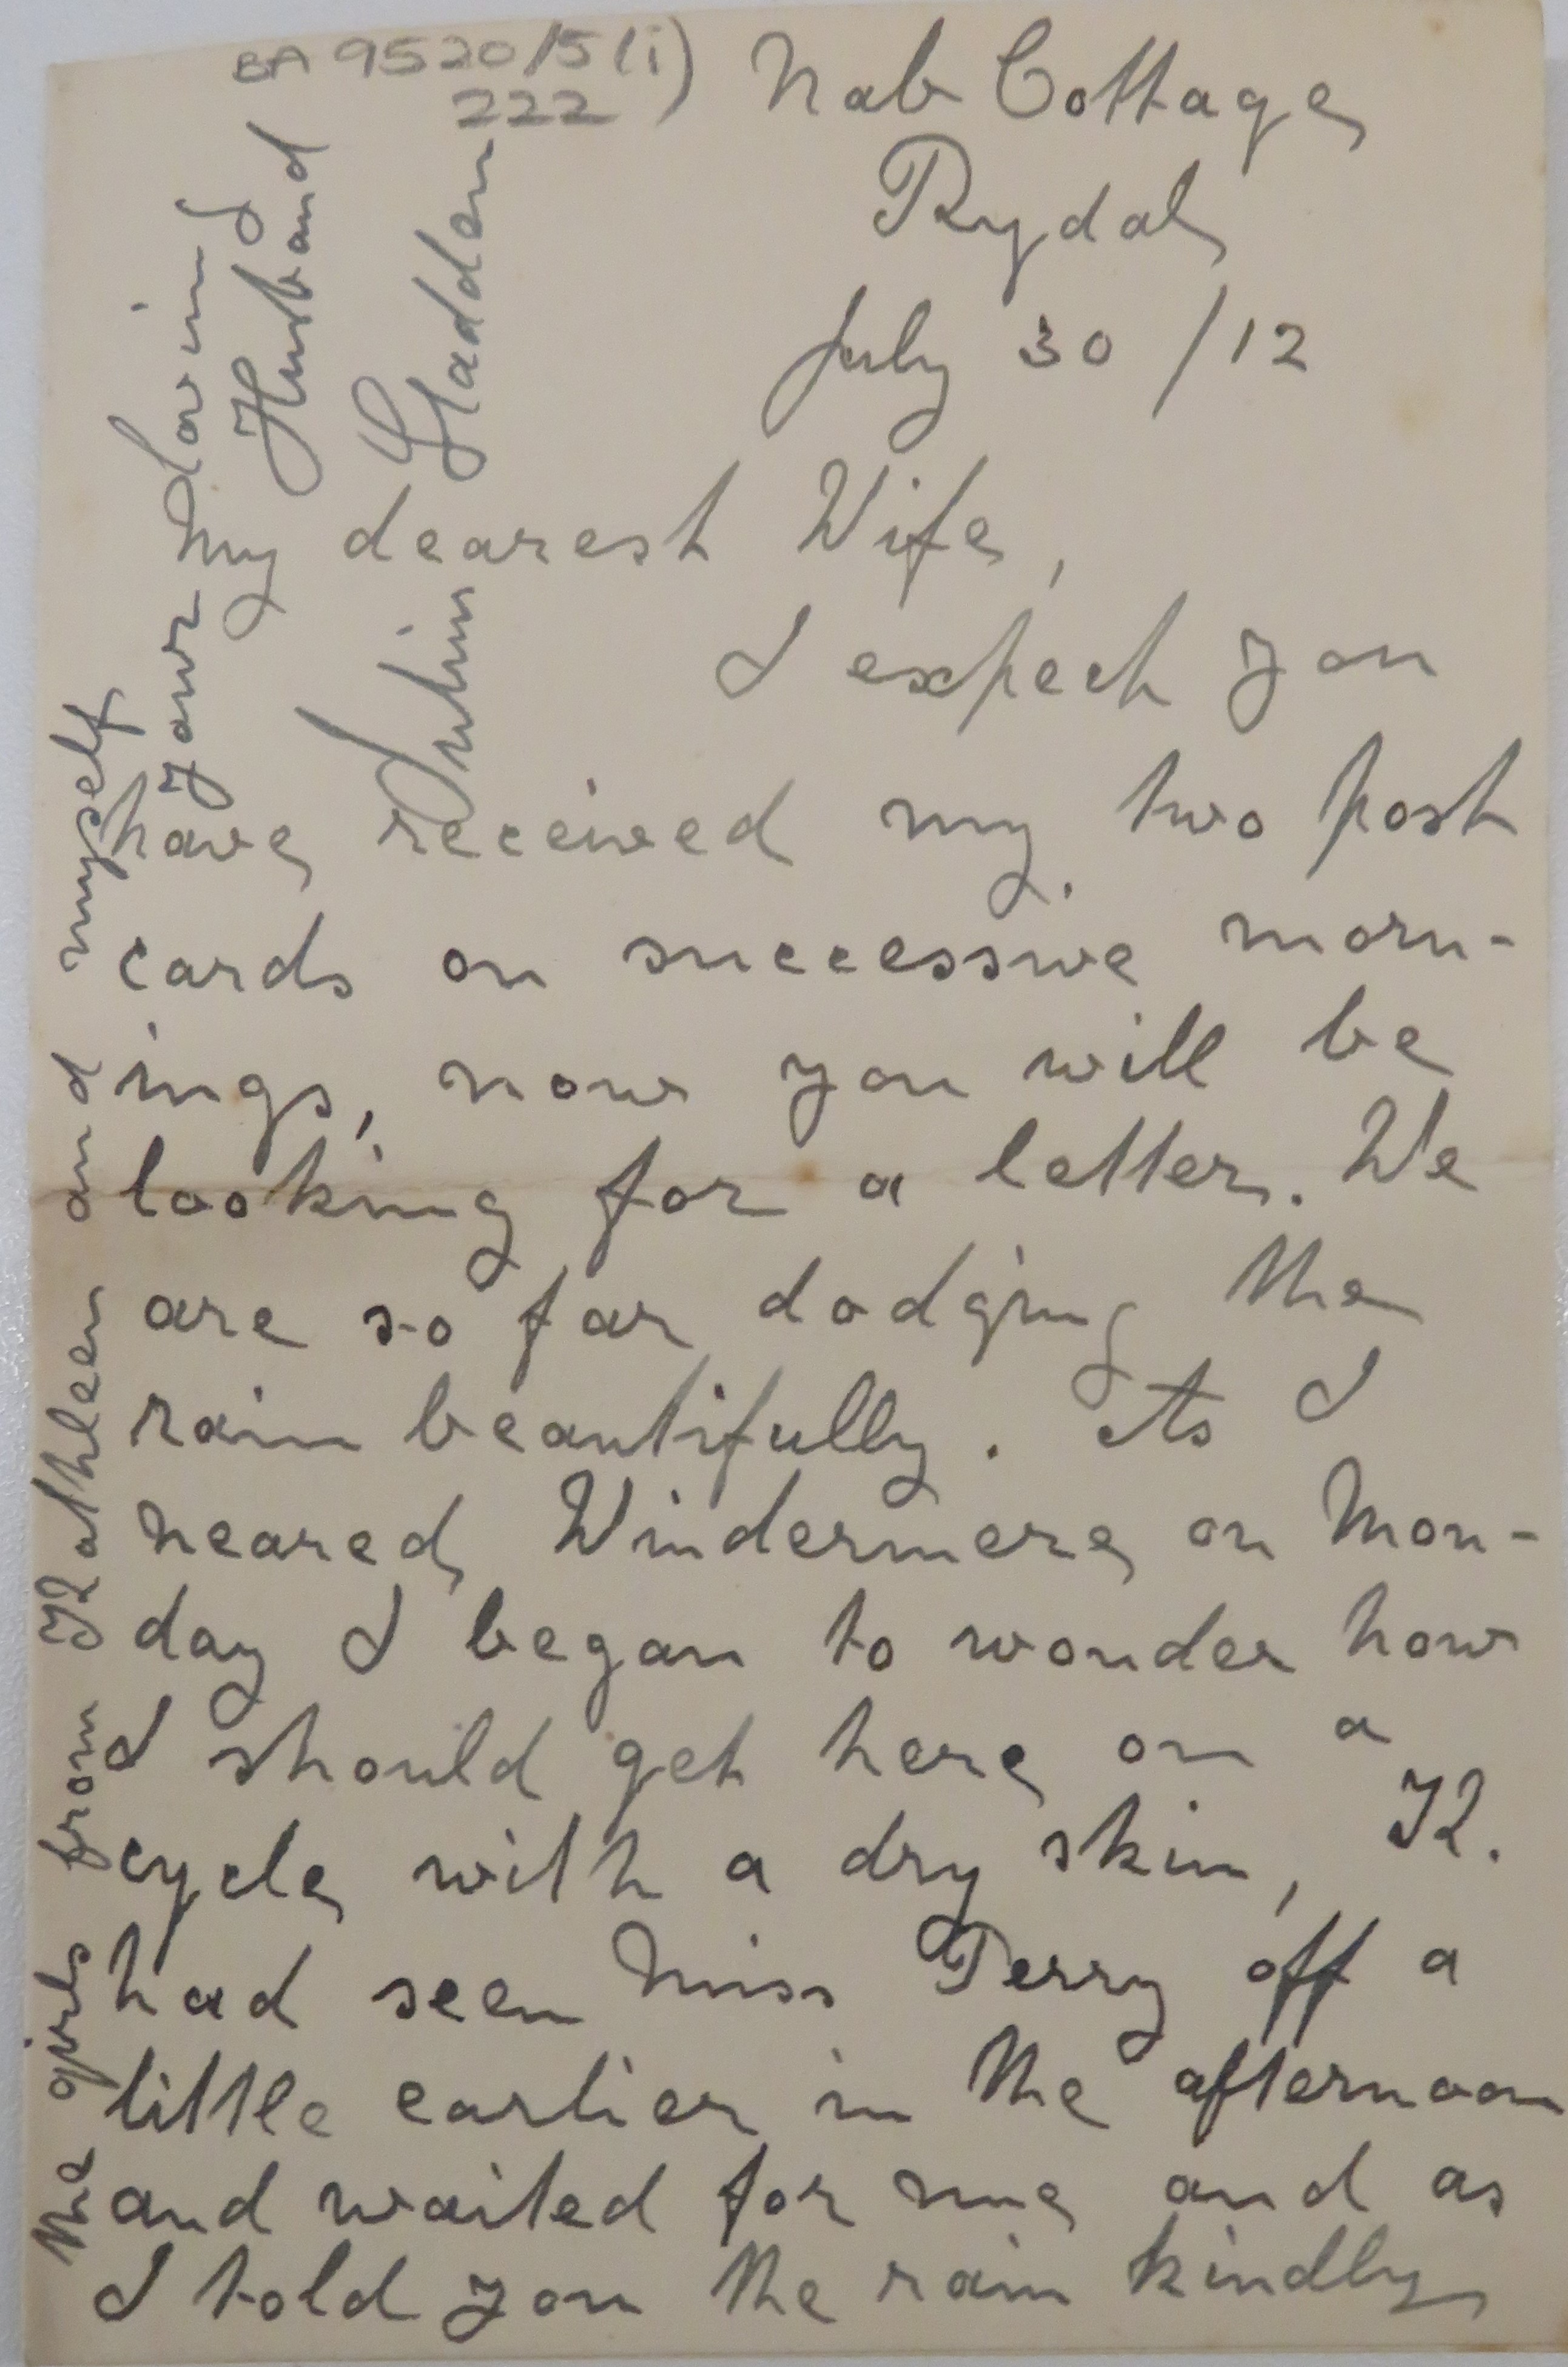 BA 9520/5(i)
222
Nab Cottage
Rydal
July 30/12
My dearest Wife,
I expect you
have received my two post
cards on successive morn-
ings, now you will be
looking for a letter. We
are so far dodging the
rain beautifully. As I
neared Windermere on Mon-
day I began to wonder how
I should get here on a
cycle with a dry skin, K.
had seen Miss Terry off a
little earlier in the afternoon
and waited for me and as
I told you the rain kindly
the girls from Kathleen and myself
Your loving
Husband
Gladden